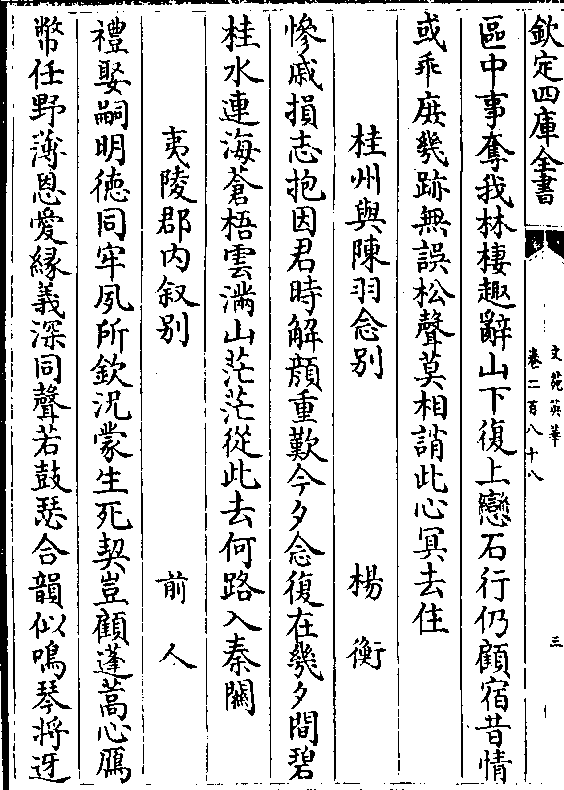 欽定四庫全書
文苑英華
卷二百八十八
三
區中事奪我林棲趣辭山下復上戀石行仍顧宿昔情
或乖庻幾跡無誤松聲莫相誚此心冥去住
桂州與陳羽念别 楊衡
慘戚損志抱因君時解顔重歎今夕念復在幾夕間碧
桂水連海蒼梧雲滿山茫茫從此去何路入秦關
夷陵郡内叙别 前人
禮娶嗣明徳同牢夙所欽況蒙生死契豈顧蓬蒿心鴈
幣任野薄恩愛縁義深同聲若鼓瑟合韻似鳴琴將迓